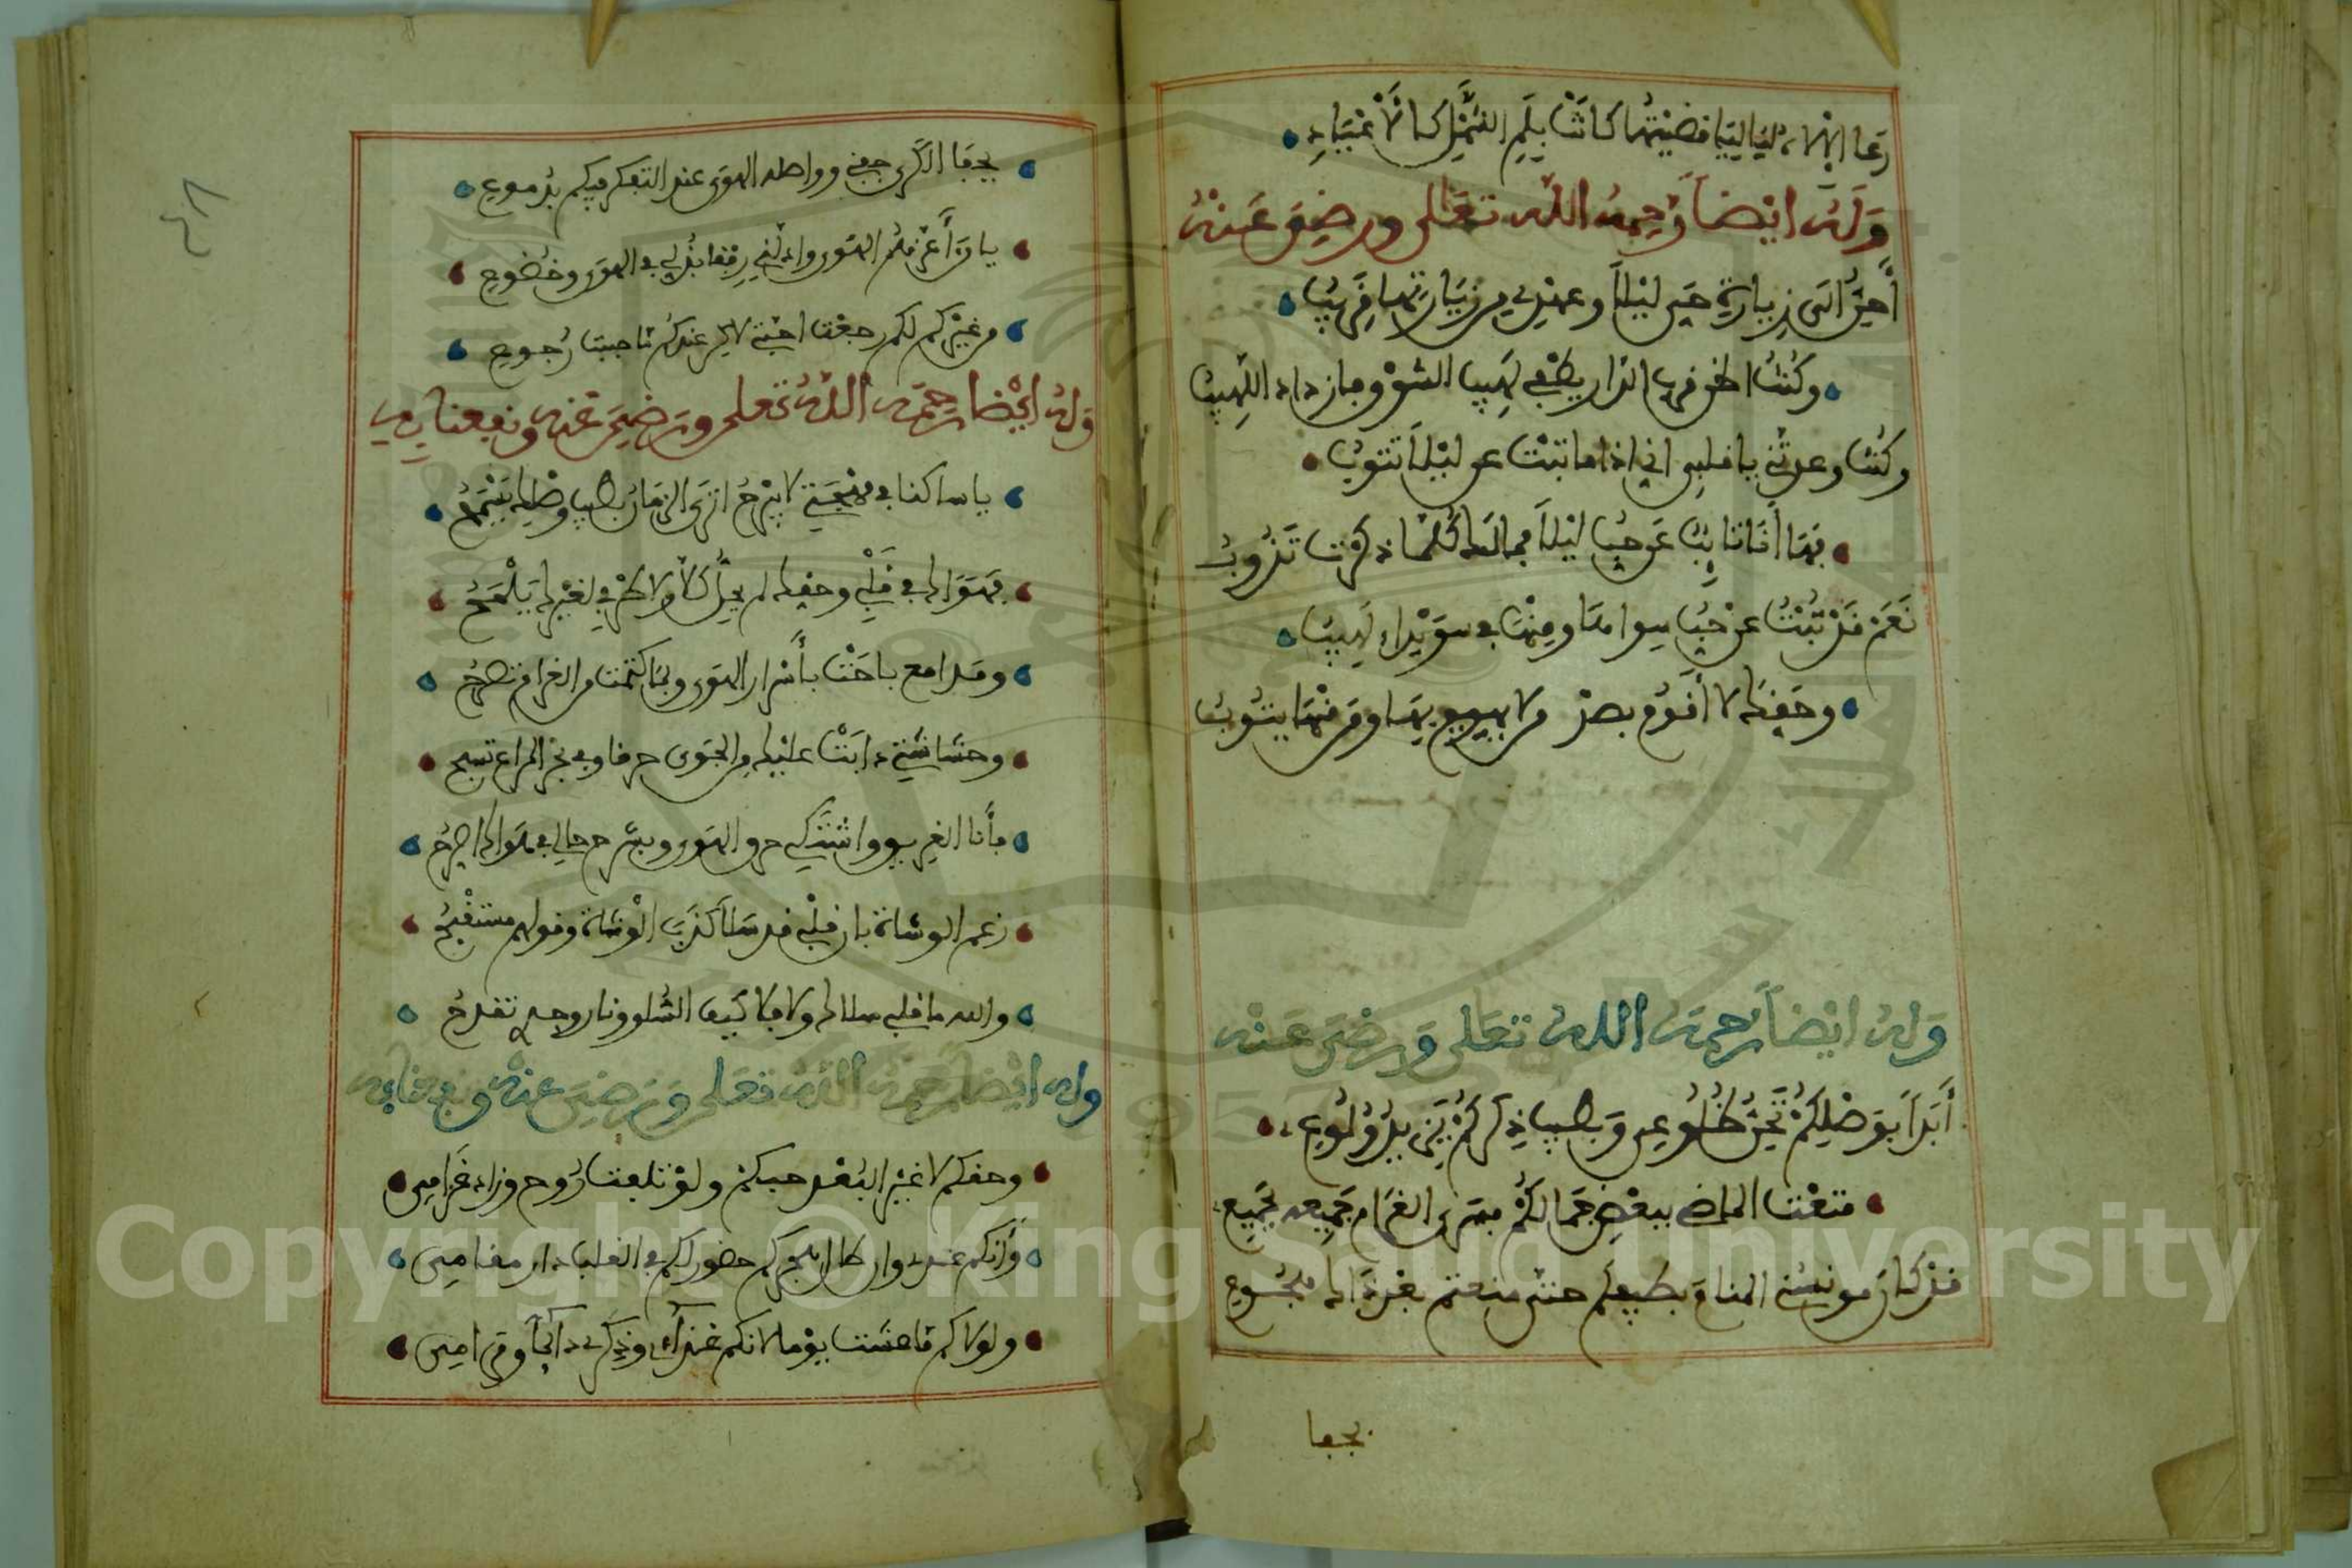 رعا الله لياليا قضيتها كانت بلم الشمل كالأعياد
وَلَهُ ايْضاً رَحِمَهُ اللَّه تعَلى ورضِيَ عَنهُ
أحِنُّ الَى زيارة حَي لَيْلَا وعهْدِي مِن زِيَارَتِهَا قَرِيبُ
وكُنْتُ اظن قرب الدار يطْفي لَهِيبَ الشوْق فازداد اللهيبُ
وكنْتَ وعدتَّنِي يا قلبي اني اذا ما تبْتُ عن لَيْلَا تتوبُ
فَهَا أَنَا تَائِبٌ عَن حُبِّ لَيْلَا فما لَكَ كُلَّمَا ذكرت تَذُوبُ
نَعَمْ قَدْ تُبْتُ عنْ حُبِّ سواها ومنْهَا في سوَيْدَاءِ لَهِيبُ
وحَقِّكَ لا أقوم بصد من يهيم بها ومن منْهَا يتُوبُ
وَلهُ ايْضاً رحِمَهُ اللهُ تعَلى وَرضِيَ عَنْه
أَبَداً بِوَصْلِكُمْ تَحِنُّ ضُلُوعِي وَبِطِيبِ ذِكْرِكُمْ يَزِيدُ وَلُوعِي
متعْتَ الماضي ببعْضِ جَمَالكُمْ فشرى الغرام جَمِيعه بجَمِيع
قدْ كانَ مونسُنِي المنام بطيفكم حتى منعتم بعْد ذَاكَ هجُوعِ
بجفا
بجفا الكرى جفني وواصله الهوى عند التفكر فيكم بدُموع
يا من أعز هم الهوى واذلني رِفقا بذلي في الهوى وخضوع
من غيركم لكم رجعْت احبتي لاكن عندكم ما حييت رُجوع
وَلهُ ايْضا رحمَه اللَّهُ تعلى ورَضِيَ عَنه ونفعنا به
يا ساكنا في مهْجَتِي لا يبْرحُ اترى الزمانُ بطيب وصْلك يَسْمَحُ
فهَوَاك في قَلْبِي وحقك لم يحُل كَلَّا ولا طرْفي لغيْرك يَلْمَحُ
ومدامع باحَتْ بأَسْرار الهَوى وبما كتمت من الغرام تصرحُ
وحشاشتي ذابَتْ عليْك من الجَوى حرقا وفي بحْر المدامع تسبح
فأنا الغريق واشتكي حرق الهَوى وبشرح حالي في هَواك اصرحُ
زعم الوشاة بان قلْبي قد سَلَا كَذَبَ الوُشاة وقولهم مستقْبَحُ
والله ما قلبي سلاك ولا قلا كيف السُّلو ونار وجدي تقدحُ
وله ايْضا رَحِمَهُ اللَّهُ تعَلى وَرَضِيَ عنْه ونفعنا به
وحقكم لا غيَّر البُعْد حبكم ولوْ تلفت رُوحي وزاد غَرامِي
وَأنكم عندي وان طال هجركم حضور لكم في القلب دار مقامِي
ولولاكم ما عشت يوْما لانكم غذاءي وذكركم دائما ومرامِي